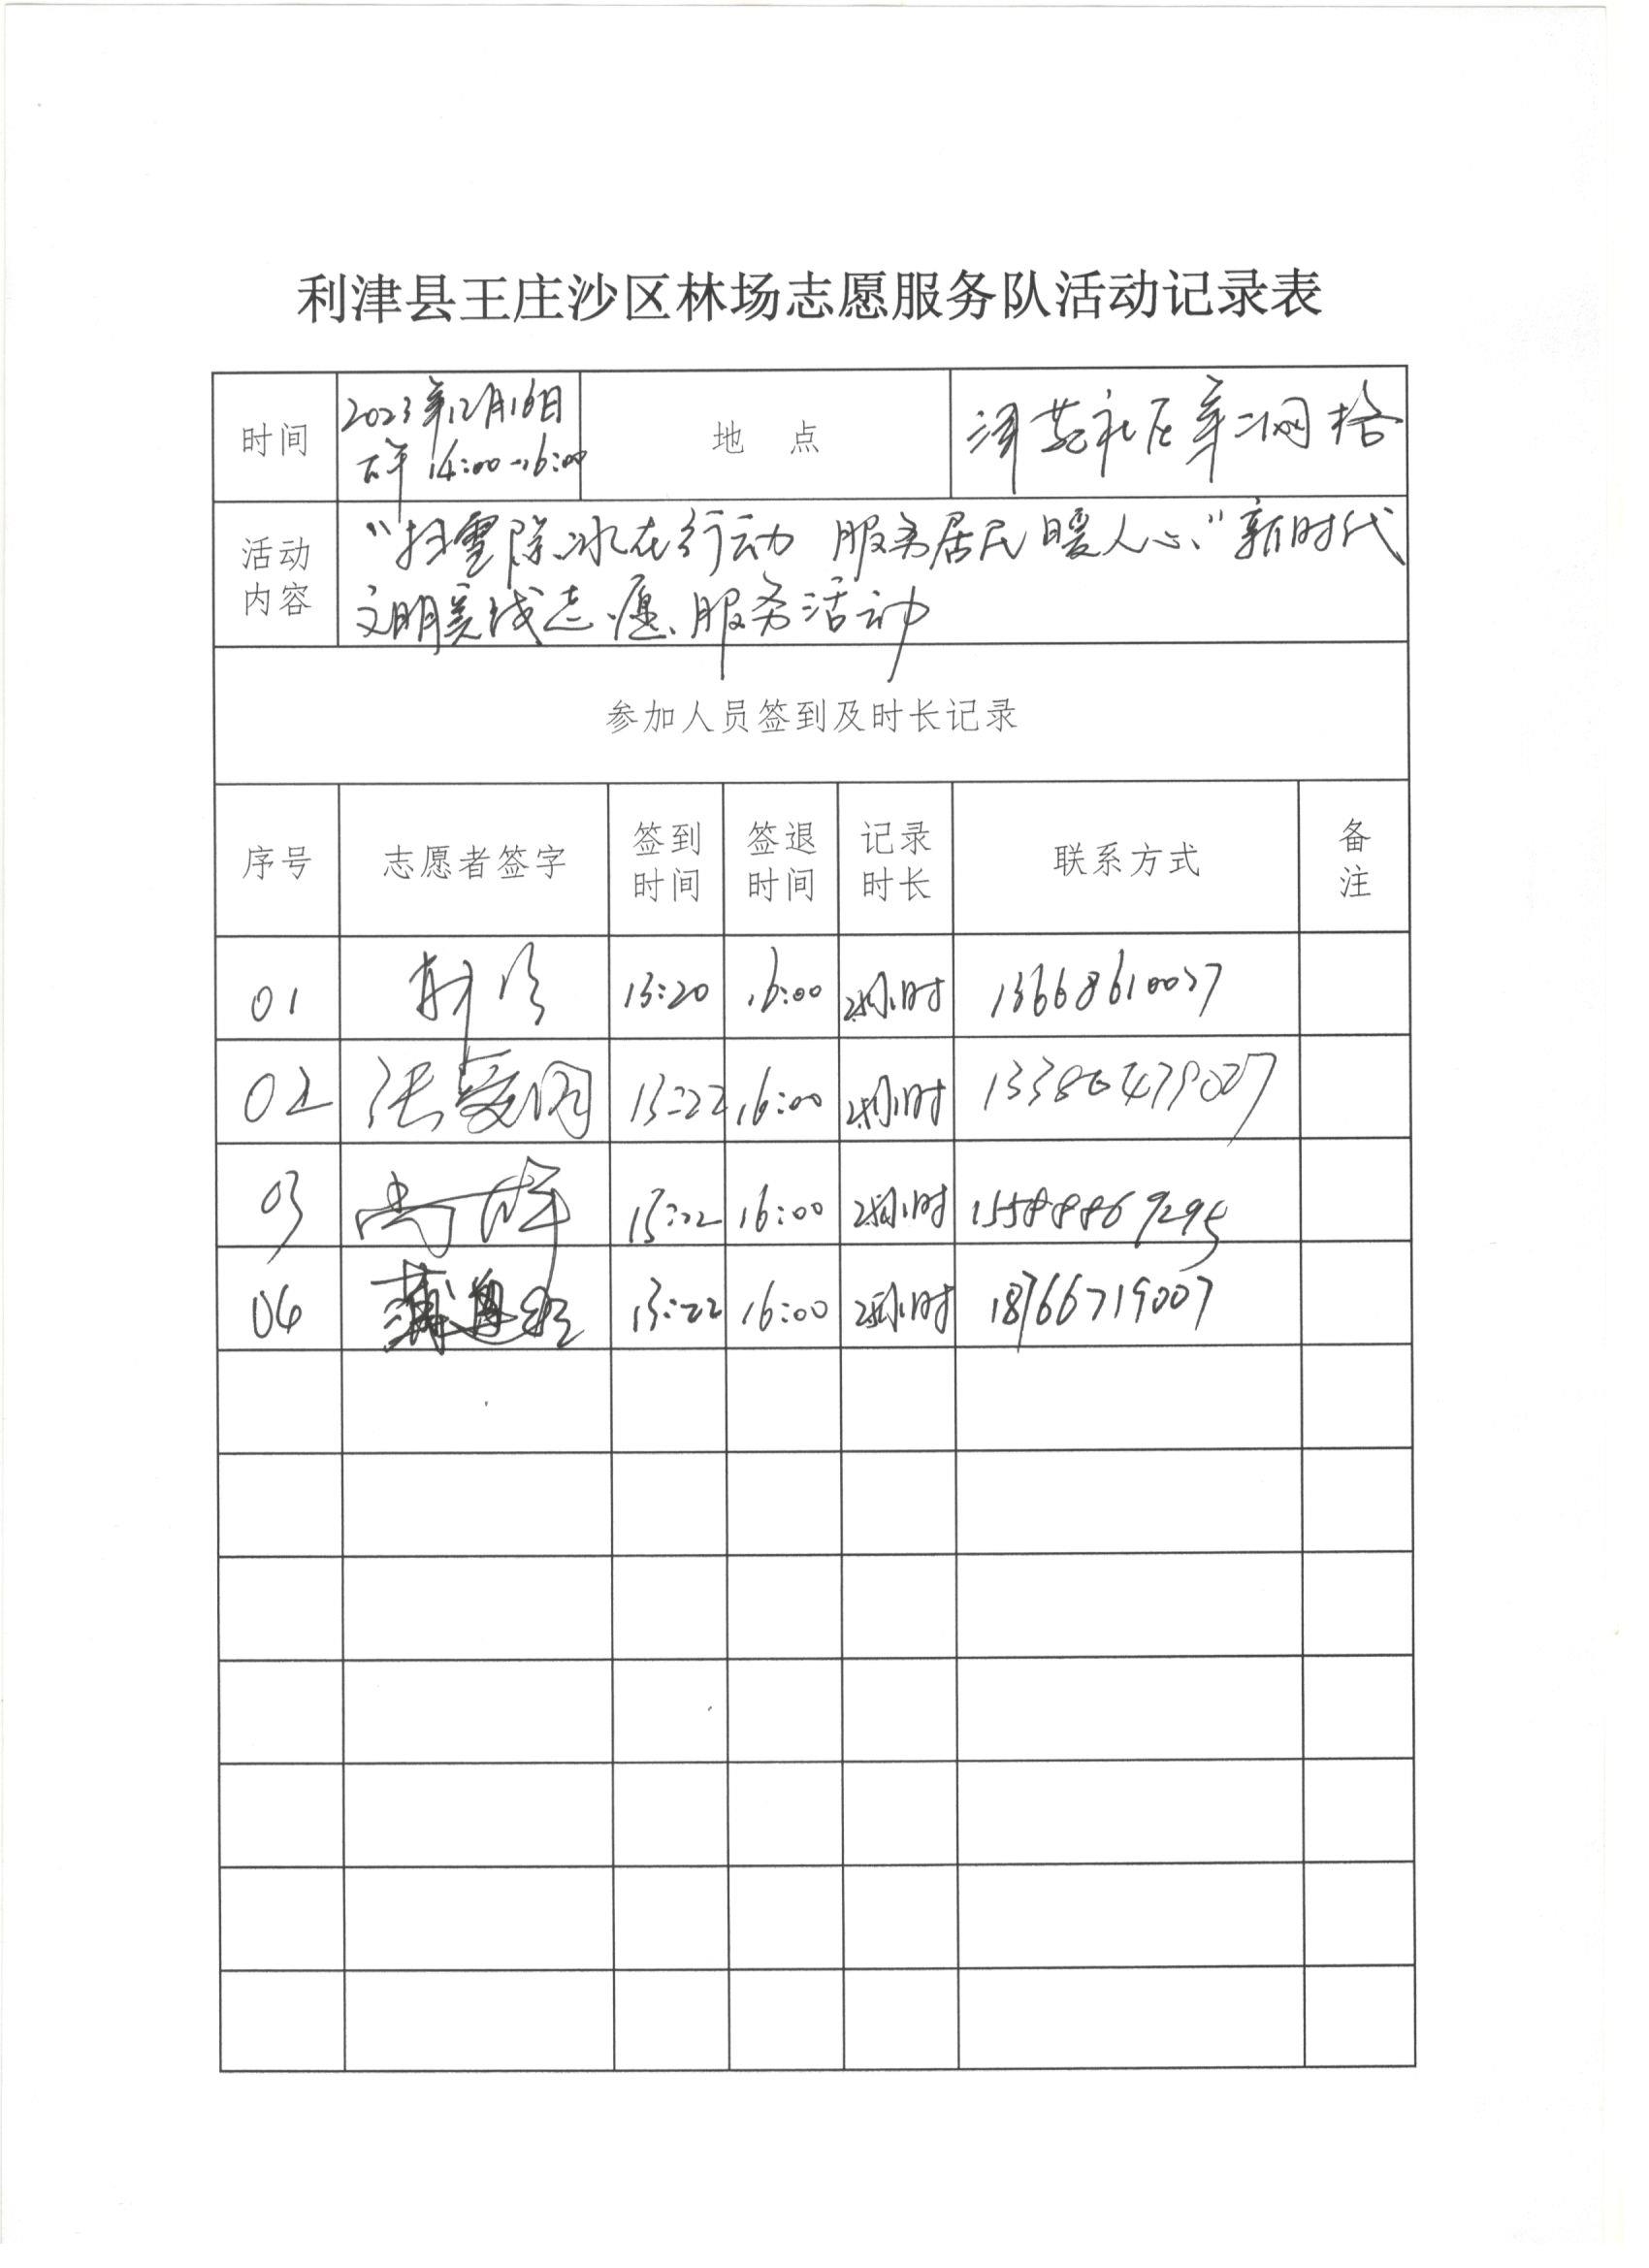 利津县王庄沙区林场志愿服务队活动记录表
时间 2023年12月16日 地 点
下午 14:00-16:00
活动内容 "扫雪除冰在行动 服务居民暖人心"新时代
文明实践志愿服务活动
参加人员签到及时长记录
序号 志愿者签字 签到时间 签退时间 记录时长 联系方式 备注
01 13:20 16:00 2小时 13668610027
02 张爱国 13:22 16:00 2小时
03 13:22 16:00 2小时 15588869295
04 13:22 16:00 2小时 18766719007